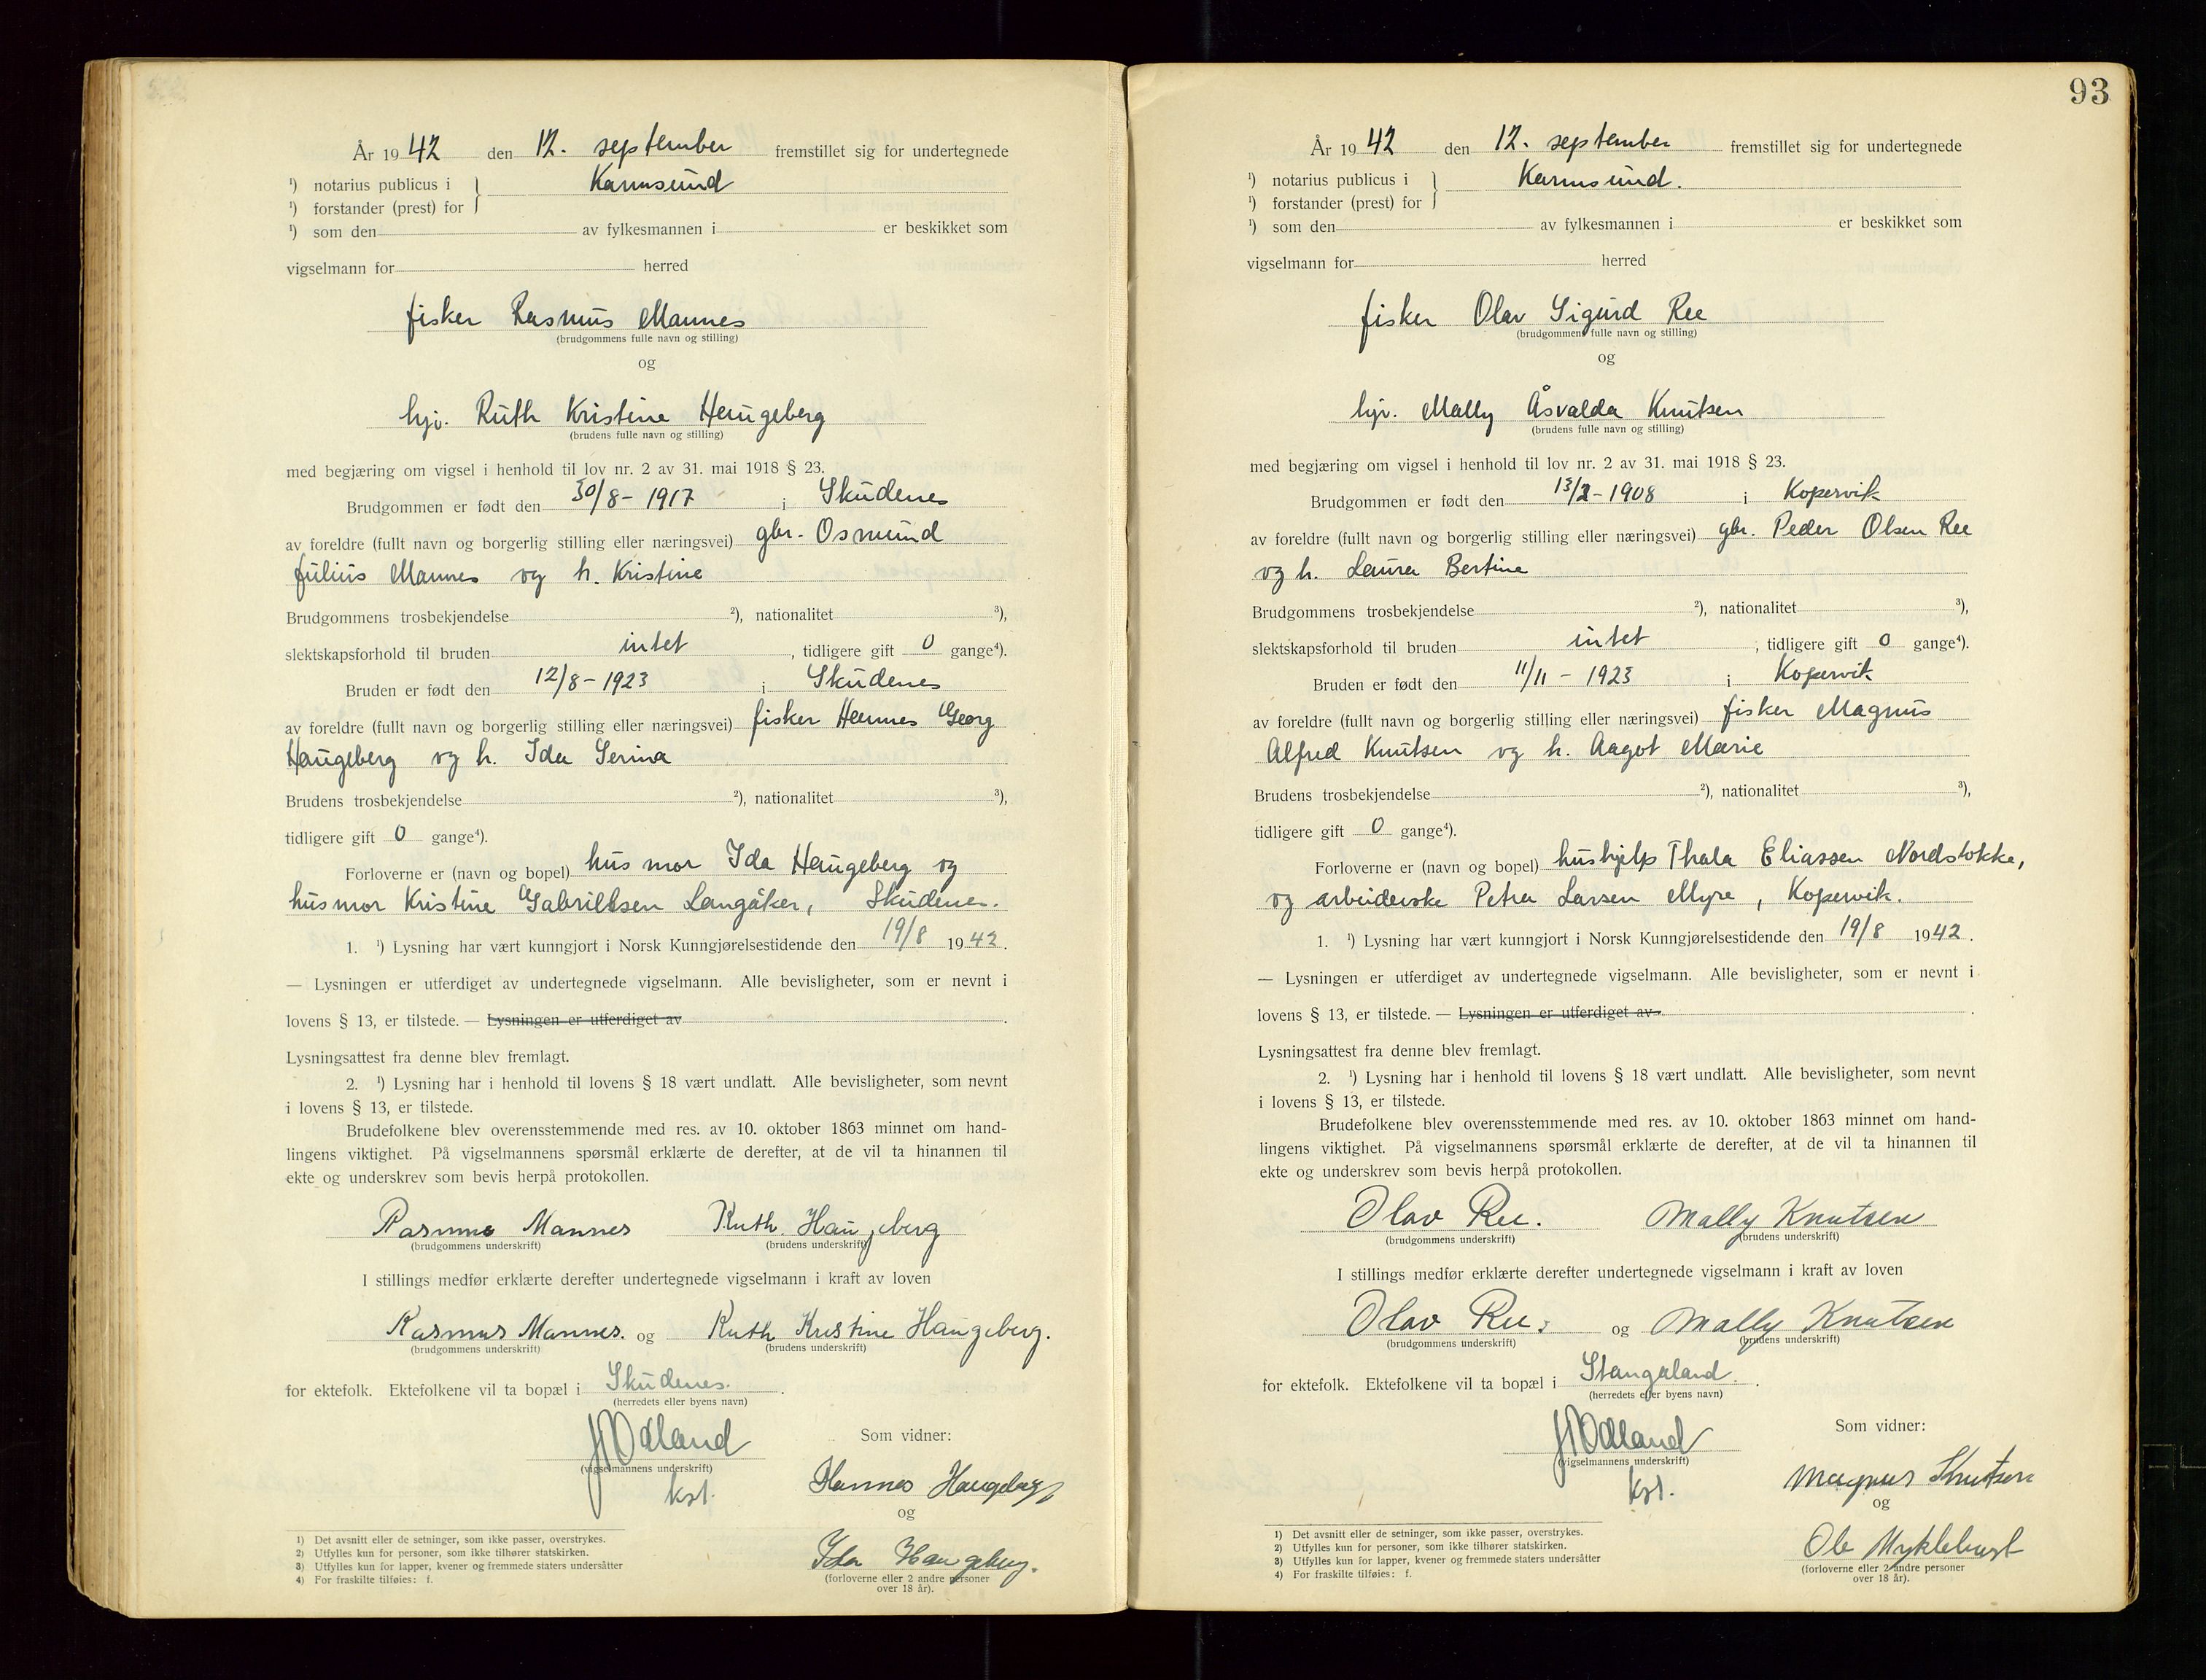 År 1942 den 12. september fremstillet sig for undertegnede
¹) notarius publicus i } Karmsund
¹) forstander (prest) for
¹) som den av fylkesmannen i er beskikket som
vigselmann for herred
fisker Rasmus Mannes
(brudgommens fulle navn og stilling)
og
hjv. Ruth Kristine Haugeberg
(brudens fulle navn og stilling)
med begjæring om vigsel i henhold til lov nr. 2 av 31. mai 1918 § 23.
Brudgommen er født den 30/8 - 1917 i Skudenes
av foreldre (fullt navn og borgerlig stilling eller næringsvei) gbr. Osmund
Julius Mannes og h. Kristine
Brudgommens trosbekjendelse ²), nationalitet ³),
slektskapsforhold til bruden intet, tidligere gift 0 gange⁴).
Bruden er født den 12/8 - 1923 i Skudenes
av foreldre (fullt navn og borgerlig stilling eller næringsvei) fisker Hannes Georg
Haugeberg og h. Ida Serina
Brudens trosbekjendelse ²), nationalitet ³),
tidligere gift 0 gange⁴).
Forloverne er (navn og bopel) husmor Ida Haugeberg og
husmor Kristine Gabrielsen Langåker, Skudenes.
1. ¹) Lysning har vært kunngjort i Norsk Kunngjørelsestidende den 19/8 1942.
— Lysningen er utferdiget av undertegnede vigselmann. Alle bevisligheter, som er nevnt i
lovens § 13, er tilstede. — Lysningen er utferdiget av .
Lysningsattest fra denne blev fremlagt.
2. ¹) Lysning har i henhold til lovens § 18 vært undlatt. Alle bevisligheter, som nevnt
i lovens § 13, er tilstede.
Brudefolkene blev overensstemmende med res. av 10. oktober 1863 minnet om hand-
lingens viktighet. På vigselmannens spørsmål erklærte de derefter, at de vil ta hinannen til
ekte og underskrev som bevis herpå protokollen.
Rasmus Mannes Ruth Haugeberg
(brudgommens underskrift) (brudens underskrift)
I stillings medfør erklærte derefter undertegnede vigselmann i kraft av loven
Rasmus Mannes. og Ruth Kristine Haugeberg.
(brudgommens underskrift) (brudens underskrift)
for ektefolk. Ektefolkene vil ta bopæl i Skudenes.
(herredets eller byens navn)
Odland
(vigselmannens underskrift)
kst.
Som vidner:
Hannes Haugeberg
og
Ida Haugeberg.
(forloverne eller 2 andre personer
over 18 år).
1) Det avsnitt eller de setninger, som ikke passer, overstrykes.
2) Utfylles kun for personer, som ikke tilhører statskirken.
3) Utfylles kun for lapper, kvener og fremmede staters undersåtter
4) For fraskilte tilføies: f.
93
År 1942 den 12. september fremstillet sig for undertegnede
¹) notarius publicus i } Karmsund.
¹) forstander (prest) for
¹) som den av fylkesmannen i er beskikket som
vigselmann for herred
fisker Olav Sigurd Ree
(brudgommens fulle navn og stilling)
og
hjv. Mally Åsvalda Knutsen
(brudens fulle navn og stilling)
med begjæring om vigsel i henhold til lov nr. 2 av 31. mai 1918 § 23.
Brudgommen er født den 13/2 - 1908 i Kopervik
av foreldre (fullt navn og borgerlig stilling eller næringsvei) gbr. Peder Olsen Ree
og h. Laura Bertine
Brudgommens trosbekjendelse ²), nationalitet ³),
slektskapsforhold til bruden intet, tidligere gift 0 gange⁴).
Bruden er født den 11/11 - 1923 i Kopervik
av foreldre (fullt navn og borgerlig stilling eller næringsvei) fisker Magnus
Alfred Knutsen og h. Aagot Marie
Brudens trosbekjendelse ²), nationalitet ³),
tidligere gift 0 gange⁴).
Forloverne er (navn og bopel) hushjelp Thala Eliassen Nordstokke,
og arbeiderske Petra Larsen Myre, Kopervik.
1. ¹) Lysning har vært kunngjort i Norsk Kunngjørelsestidende den 19/8 1942.
— Lysningen er utferdiget av undertegnede vigselmann. Alle bevisligheter, som er nevnt i
lovens § 13, er tilstede. — Lysningen er utferdiget av .
Lysningsattest fra denne blev fremlagt.
2. ¹) Lysning har i henhold til lovens § 18 vært undlatt. Alle bevisligheter, som nevnt
i lovens § 13, er tilstede.
Brudefolkene blev overensstemmende med res. av 10. oktober 1863 minnet om hand-
lingens viktighet. På vigselmannens spørsmål erklærte de derefter, at de vil ta hinannen til
ekte og underskrev som bevis herpå protokollen.
Olav Ree. Mally Knutsen
(brudgommens underskrift) (brudens underskrift)
I stillings medfør erklærte derefter undertegnede vigselmann i kraft av loven
Olav Ree. og Mally Knutsen
(brudgommens underskrift) (brudens underskrift)
for ektefolk. Ektefolkene vil ta bopæl i Stangaland.
(herredets eller byens navn)
Odland
(vigselmannens underskrift)
kst.
Som vidner:
Magnus Knutsen
og
Ole Myklebust
(forloverne eller 2 andre personer
over 18 år).
1) Det avsnitt eller de setninger, som ikke passer, overstrykes.
2) Utfylles kun for personer, som ikke tilhører statskirken.
3) Utfylles kun for lapper, kvener og fremmede staters undersåtter
4) For fraskilte tilføies: f.